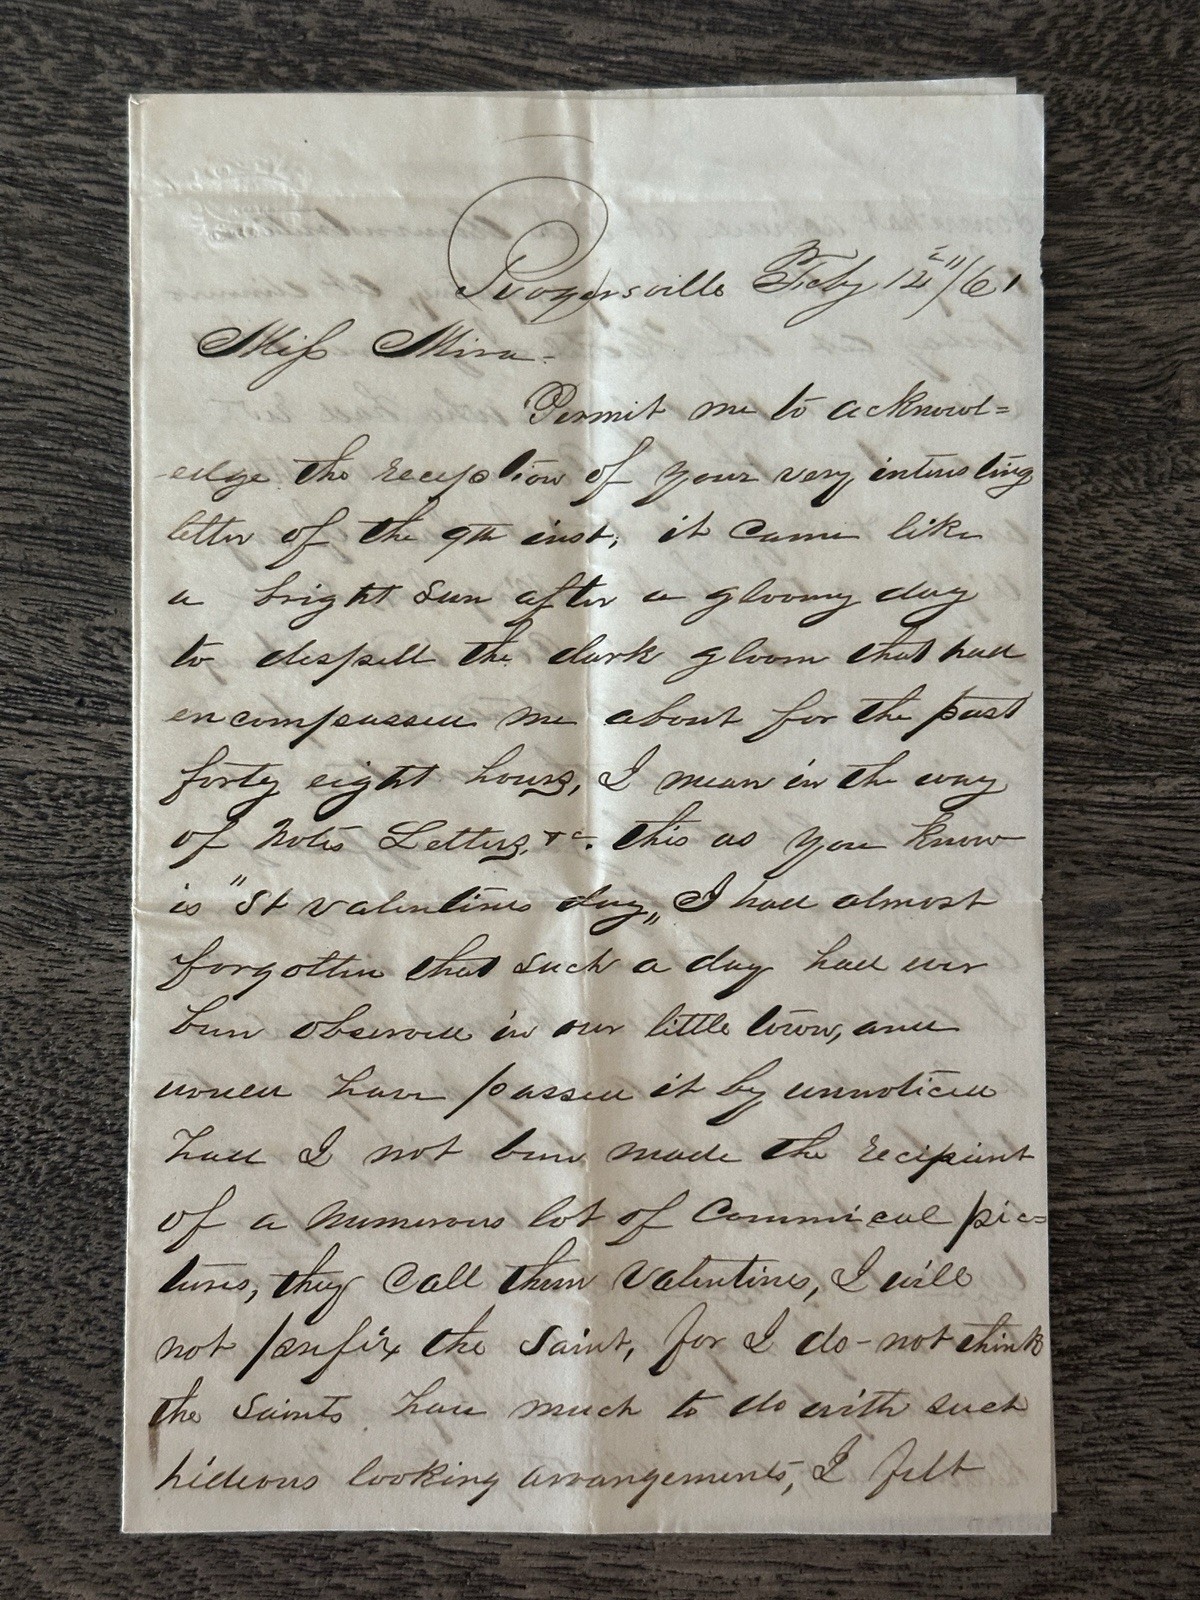 Rogersville Feby 14"/61
Miss Mira-
Permit me to acknowl=
edge the reception of your very interesting
letter of the 9th inst, it came like
a bright Sun after a gloomy day
to despell the dark gloom that had
encompassed me about for the past
forty eight hours, I mean in the way
of Notes Letters, &c. this as you know
is "St Valentines day" I had almost
forgotten that such a day had ever
been observed in our little town, and
would have passed it by unnoticed
had I not been made the recipient
of a numerous lot of Commical pic=
tures, they Call them Valentines, I will
not prefix the Saint, for I do-not think
the Saints have much to do with such
hideous looking arrangements, I felt